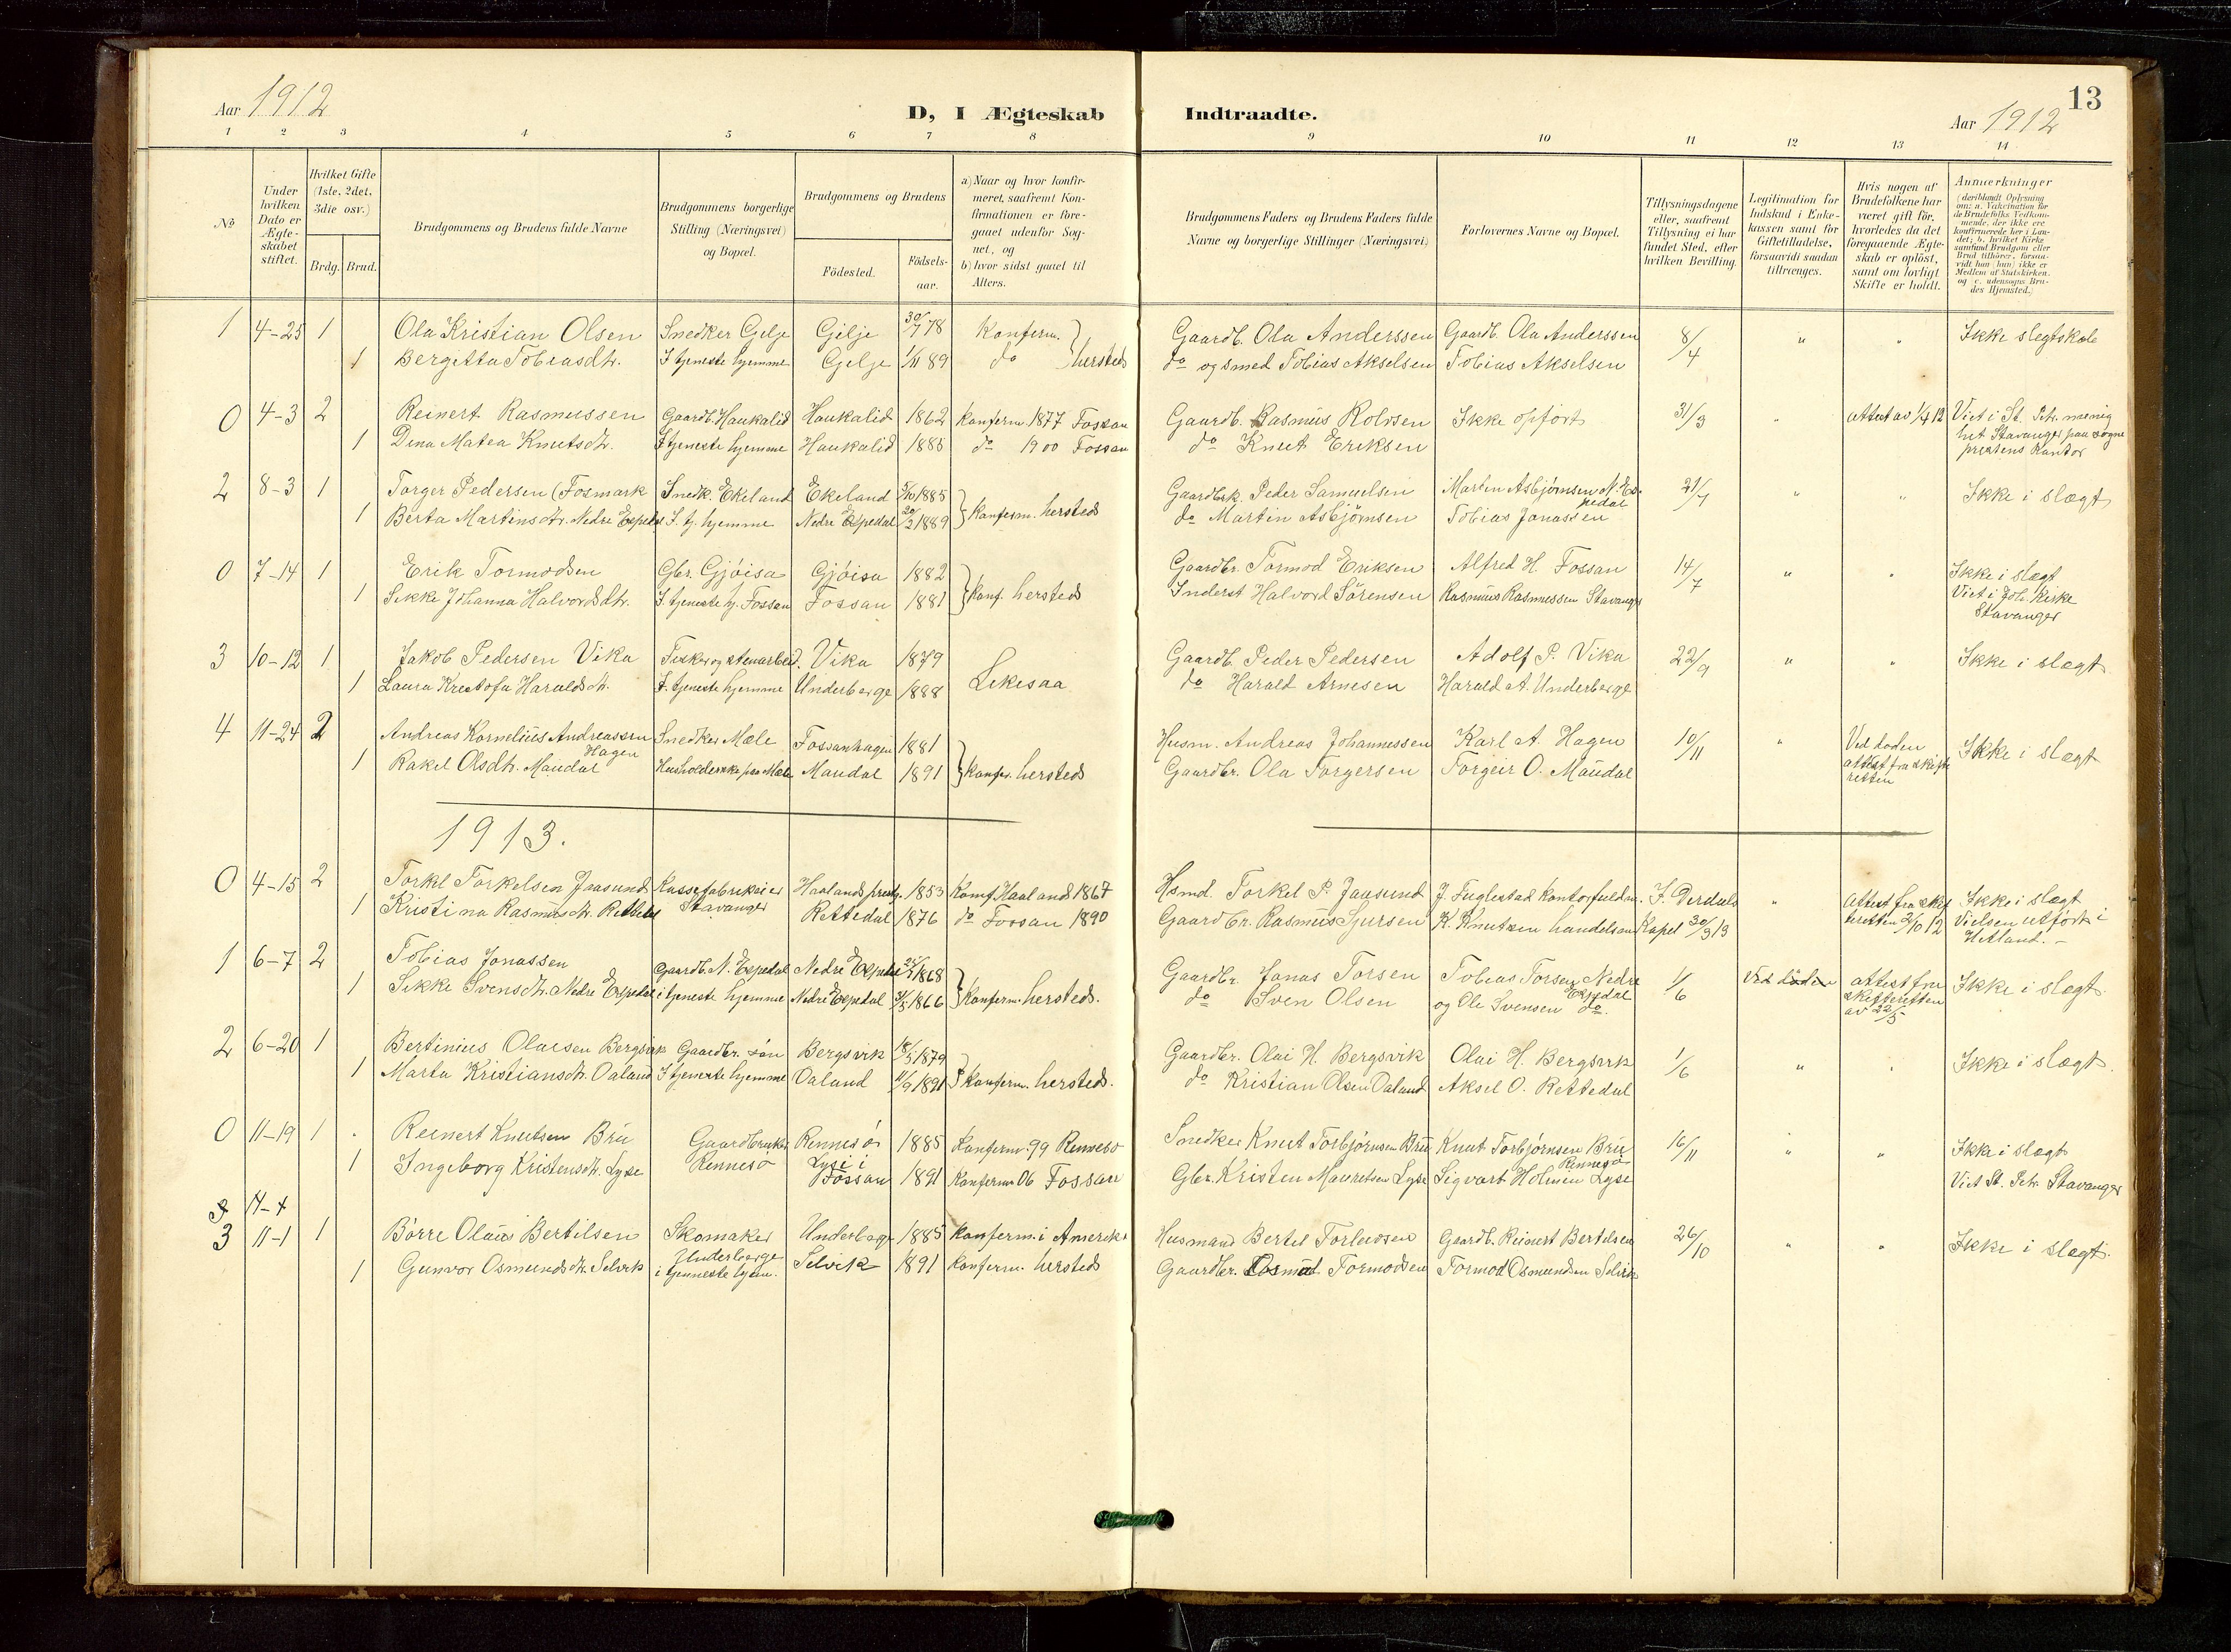 Aar 1912
D, I Ægteskab Indtraadte.
13
Aar 1912
1 2 3 4 5 6 7 8 9 10 11 12 13 14
No
Under hvilken Dato er Ægteskabet stiftet.
Hvilket Gifte (1ste, 2det, 3die osv.)
Brdg. Brud.
Brudgommens og Brudens fulde Navne
Brudgommens borgerlige Stilling (Næringsvei) og Bopæl.
Brudgommens og Brudens
Födested.
Födselsaar.
a) Naar og hvor konfirmeret, saafremt Konfirmationen er foregaaet udenfor Sognet, og
b) hvor sidst gaaet til Alters.
Brudgommens Faders og Brudens Faders fulde Navne og borgerlige Stillinger (Næringsvei)
Forlovernes Navne og Bopæl.
Tillysningsdagene eller, saafremt Tillysning ei har fundet Sted, efter hvilken Bevilling.
Legitimation for Indskud i Enkekassen samt for Giftetilladelse, forsaavidt saadan tiltrænges.
Hvis nogen af Brudefolkene har været gift för, hvorledes da det foregaaende Ægteskab er oplöst, samt om lovligt Skifte er holdt.
Anmærkninger (deriblandt Oplysning om: a. Vakcination for de Brudefolks Vedkommende, der ikke ere konfirmerede her i Landet; b. hvilket Kirkesamfund Brudgom eller Brud tilhörer, forsaavidt han (hun) ikke er Medlem af Statskirken. og c. udensogns Brudes Hjemsted.)
1 4-25 1 Ola Kristian Olsen Snedker Gilje Gilje 30/7 78 Konferm. Gaardb. Ola Anderssen Gaardb. Ola Anderssen 8/4 " " Ikke slegtskab
1 Bergitta Tobiasdtr. I tjeneste hjemme Gilje 1/11 89 do hersteds do og smed Tobias Akselsen Tobias Akselsen
0 4-3 2 Reinert Rasmussen Gaardb. Haukalid Haukalid 1862 Konferm. 1877 Fossan Gaardb. Rasmus Kolvsen Ikke opfört 31/3 " Attest av 1/4 12 Viet i St. Petr. menig
1 Dina Matea Knutsdtr. I tjeneste hjemme Haukalid 1885 do 1900 Fossan do Knut Eriksen het Stavanger paa sogne
prestens kontor
2 8-3 1 Torger Pedersen (Fosmark Snedk. Ekeland Ekeland 5/10 1885 Gaardbrk. Peder Samuelsen Martin Asbjørnsen N. Es- 21/7 " " Ikke i slægt
pedal
1 Berta Martinsdtr. Nedre Espedal I tj. hjemme Nedre Espedal 20/2 1889 Konferm. hersteds do Martin Asbjörnsen Tobias Jonassen
0 7-14 1 Erik Tormodsen Gbr. Gjöisa Gjöisa 1882 Gaardbr. Tormod Eriksen Alfred H. Fossan 14/7 " " Ikke i slægt
1 Sikke Johanna Halvordsdtr. I tjeneste hj. Fossan Fossan 1881 Konf. hersteds Inderst Halvord Sörensen Rasmus Rasmussen Stavanger Viet i Joh. Kirke
Stavanger
3 10-12 1 Jakob Pedersen Vika Fisker og stenarbeid. Vika 1879 Gaardb. Peder Pedersen Adolf P. Vika 22/9 " " Ikke i slægt
1 Laura Kristofa Haraldsdtr. I tjeneste hjemme Underberge 1888 Lekesaa do Harald Arnesen Harald A. Underberge
4 11-24 2 Andreas Kornelius Andreassen Snedker Mæle Fossanhagen 1881 Husm. Andreas Johannessen Karl A. Hagen 10/11 " Ved døden Ikke i slægt
Hagen
1 Rakel Olsdtr. Maudal Husholderske paa Mæle Maudal 1891 Konfer. hersteds Gaardbr. Ola Torgersen Torgeir O. Maudal attest fra skifte
retten
1913.
0 4-15 2 Torkel Torkelsen Jaasund Kassefabrikeier Haalands prestg. 1853 Konf. Haaland 1867 Hsmd. Torkel P. Jaasund J. Fuglestad Kontorfuldm. I. Dirdals " Attest fra skif Ikke i slægt
1 Kristina Rasmusdtr. Rettedal Stavanger Rettedal 1876 do Fossan 1890 Gaardbr. Rasmus Sjursen K. Knutsen handelsm. Kapel 30/3 13 teretten 2/10 12 Vielsen utfört i
Hetland. -
1 6-7 2 Tobias Jonassen Gaardb. N. Espedal Nedre Espedal 1868 Gaardbr. Jonas Torsen Tobias Torsen Nedre 1/6 Ved döden attest fra Ikke i slægt
Espedal
1 Sikke Svensdtr. Nedre Espedal i tjeneste hjemme Nedre Espedal 1866 Konferm. hersteds. do Sven Olsen og Ole Svensen do. skifteretten
av 22/5
2 6-20 1 Bertinius Olaisen Bergsvik Gaardbr. sön Bergsvik 18/5 1879 Gaardbr. Olai H. Bergsvik Olai H. Bergsvik 1/6 " " Ikke i slægt.
1 Marta Kristiansdtr. Oaland I tjeneste hjemme Oaland 11/9 1891 Konferm. hersteds. do Kristian Olsen Oaland Aksel O. Rettedal
0 11-19 1 Reinert Knutsen Bru Gaardbruker Rennesö 1885 Konferm. 99 Rennesö Snedker Knut Torbjørnsen Bru Knut Torbjørnsen Bru 16/11 " " Ikke i slægt
Rennesö
1 Ingeborg Kristensdtr. Lyse Rennesö Lyse i Fossan 1891 Konferm. 06 Fossan Gbr. Kristen Mauritsen Lyse Sigvart Holmen Lyse Viet St. Petr. Stavanger
3 11-1 1 Börre Olaus Bertilsen Skomaker Underbege 1885 Konferm. i Amerika Husmand Bertel Torleivsen Gaardb. Reinert Bertelsen 26/10 " " Ikke i slægt.
Underberge
1 Gunvor Osmundsdtr. Selvik i tjenneste hjem. Selvik 1891 Konferm. hersteds Gaardbr. Tormodsen Tormod Osmundsen Selvik